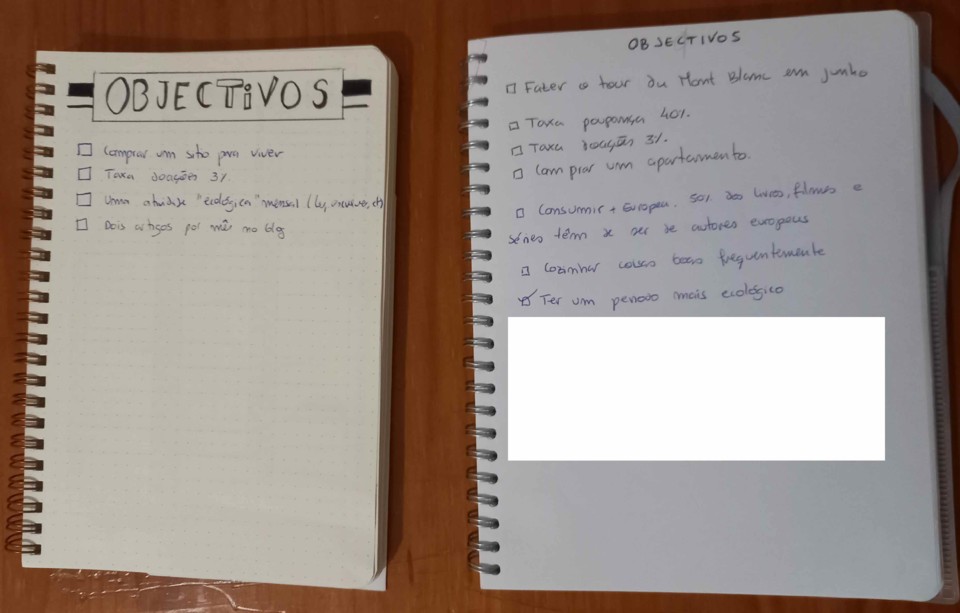 OBJECTIVOS
Comprar um sitio para viver
Taxa doações 3%
Uma atividade "ecológica" mensal (
Dois artigos por mês no blog
OBJECTIVOS
Fazer o tour du Mont Blanc em junho
Taxa poupança 40%.
Taxa doações 3%.
Comprar um apartamento.
Consumir + Europeu. 50% dos livros, filmes e
séries têm de ser de autores europeus
Cozinhar coisas boas frequentemente
Ter um período mais ecológico